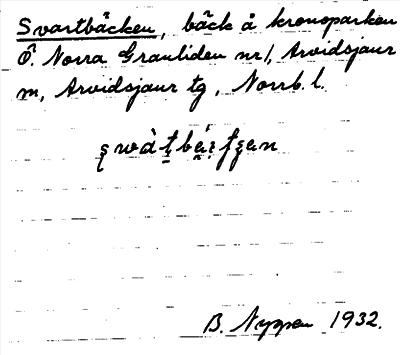 Svartbäcken, bäck å kronoparken
Ö. Norra Granliden nr 1, Arvidsjaur
m, Arvidsjaur tg, Norrb. l.
B. Nygren 1932.